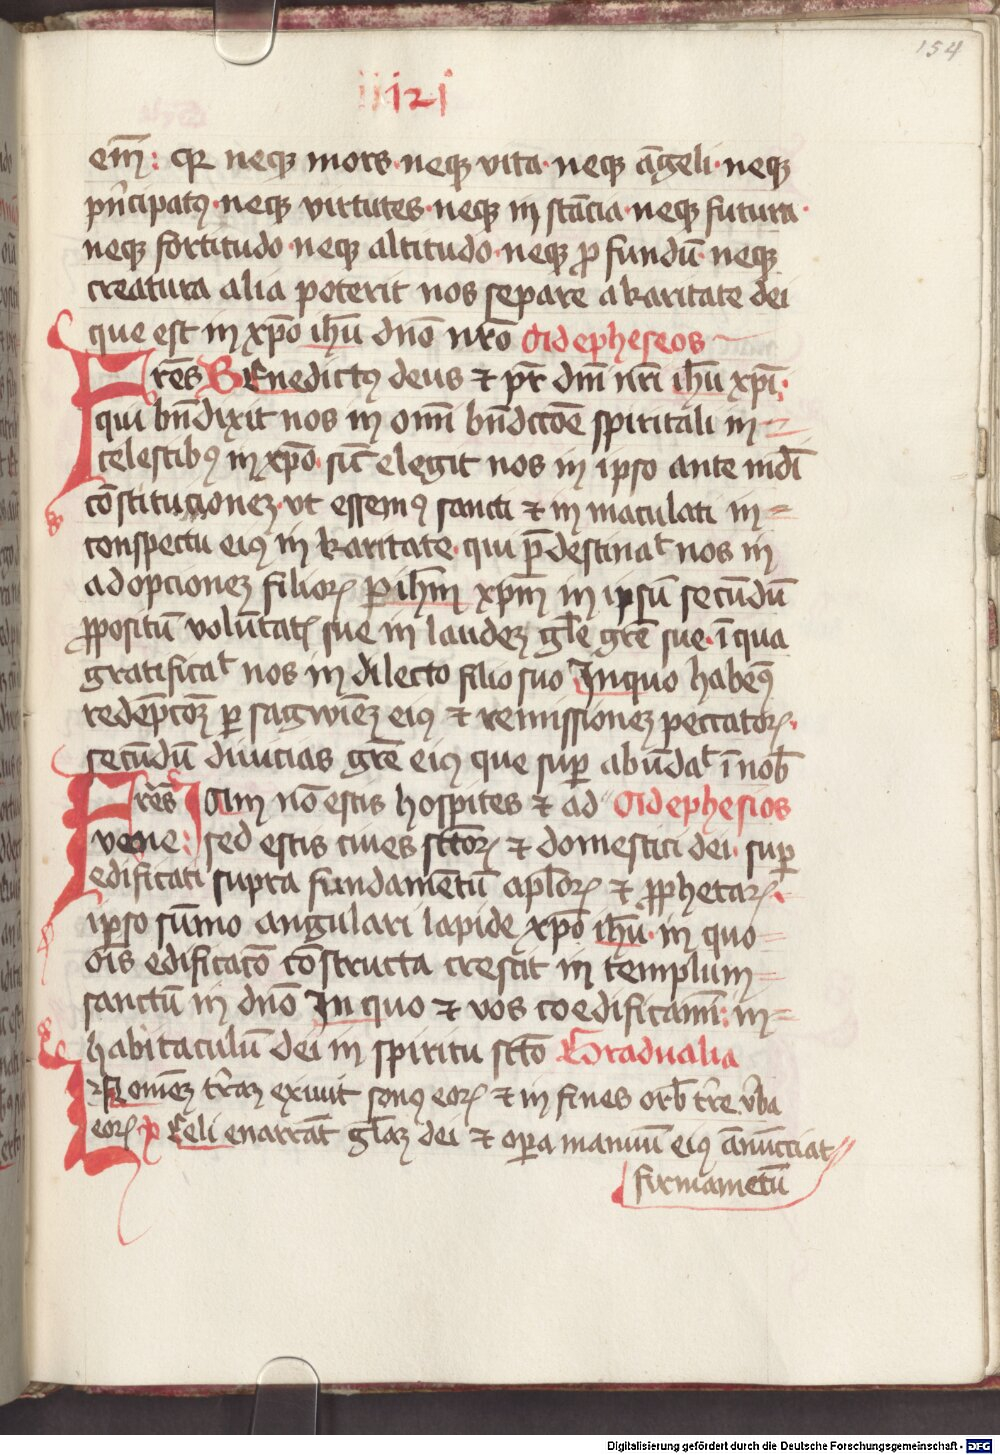 154
121
em̄: qꝛ neqꝫ mors· neqꝫ vita· neqꝫ āgeli· neqꝫ
pⁿcipatꝰ· neqꝫ virtutes· neqꝫ in stācia· neqꝫ futura·
neqꝫ fortitudo· neqꝫ altitudo· neqꝫ ꝓfundū· neqꝫ
creatura alia poterit nos separe a karitate dei
que est in xp̄o ih̄u dn̄o nr̄o Ad epheseos
Fr̄es Benedictꝰ deus ⁊ pr̄ dn̄i nr̄i ih̄u xp̄i·
qui bn̄dixit nos in om̄i bn̄dicc̄oe spiritāli in
celestibꝰ in xp̄o· sic̄ elegit nos in ipso ante mūdi
cōstitucionez· vt essemꝰ sancti ⁊ in maculati in
conspectu eiꝰ in karitate· qui p̄destinaꝉ nos in
adopcionez filioꝝ ꝑ ih̄m xp̄m in ipsū secūdū
ꝓpositū volūtatꝭ sue in laudez gl̄e gr̄e sue· ī qua
gratificaꝉ nos in dilecto filio suo In quo habem̄ꝰ
redēpc̄oꝫ ꝑ sagwiēz eiꝰ ⁊ remissionez peccatoꝝ·
secūdū diuicias gr̄e eiꝰ que suꝑ abūdaꝉ ī nob̄
Fr̄es Iam nō estis hospites ⁊ ad Ad ephesios
vene: sed estis ciues sc̄toꝝ ⁊ domestici dei· suꝑ
edificati supra fundamētū apl̄oꝝ ⁊ ꝓphetaꝝ·
ip̄so sūmo angulari lapide xp̄o ih̄u· in quo
ois̄ edificac̄o cōstructa crescit in templum
sanctū in dn̄o In quo ⁊ vos coedificamī: in
habitaculū dei in spiritu sc̄to Gradualia
In omēz tr̄az exiuit sonꝰ eoꝝ ⁊ in fines orb̄ tr̄e v̄ba
eoꝝ Celi enarrāt gl̄az dei ⁊ oꝑa manuū eiꝰ ānūcciat
firmamētū
Digitalisierung gefördert durch die Deutsche Forschungsgemeinschaft - DFG